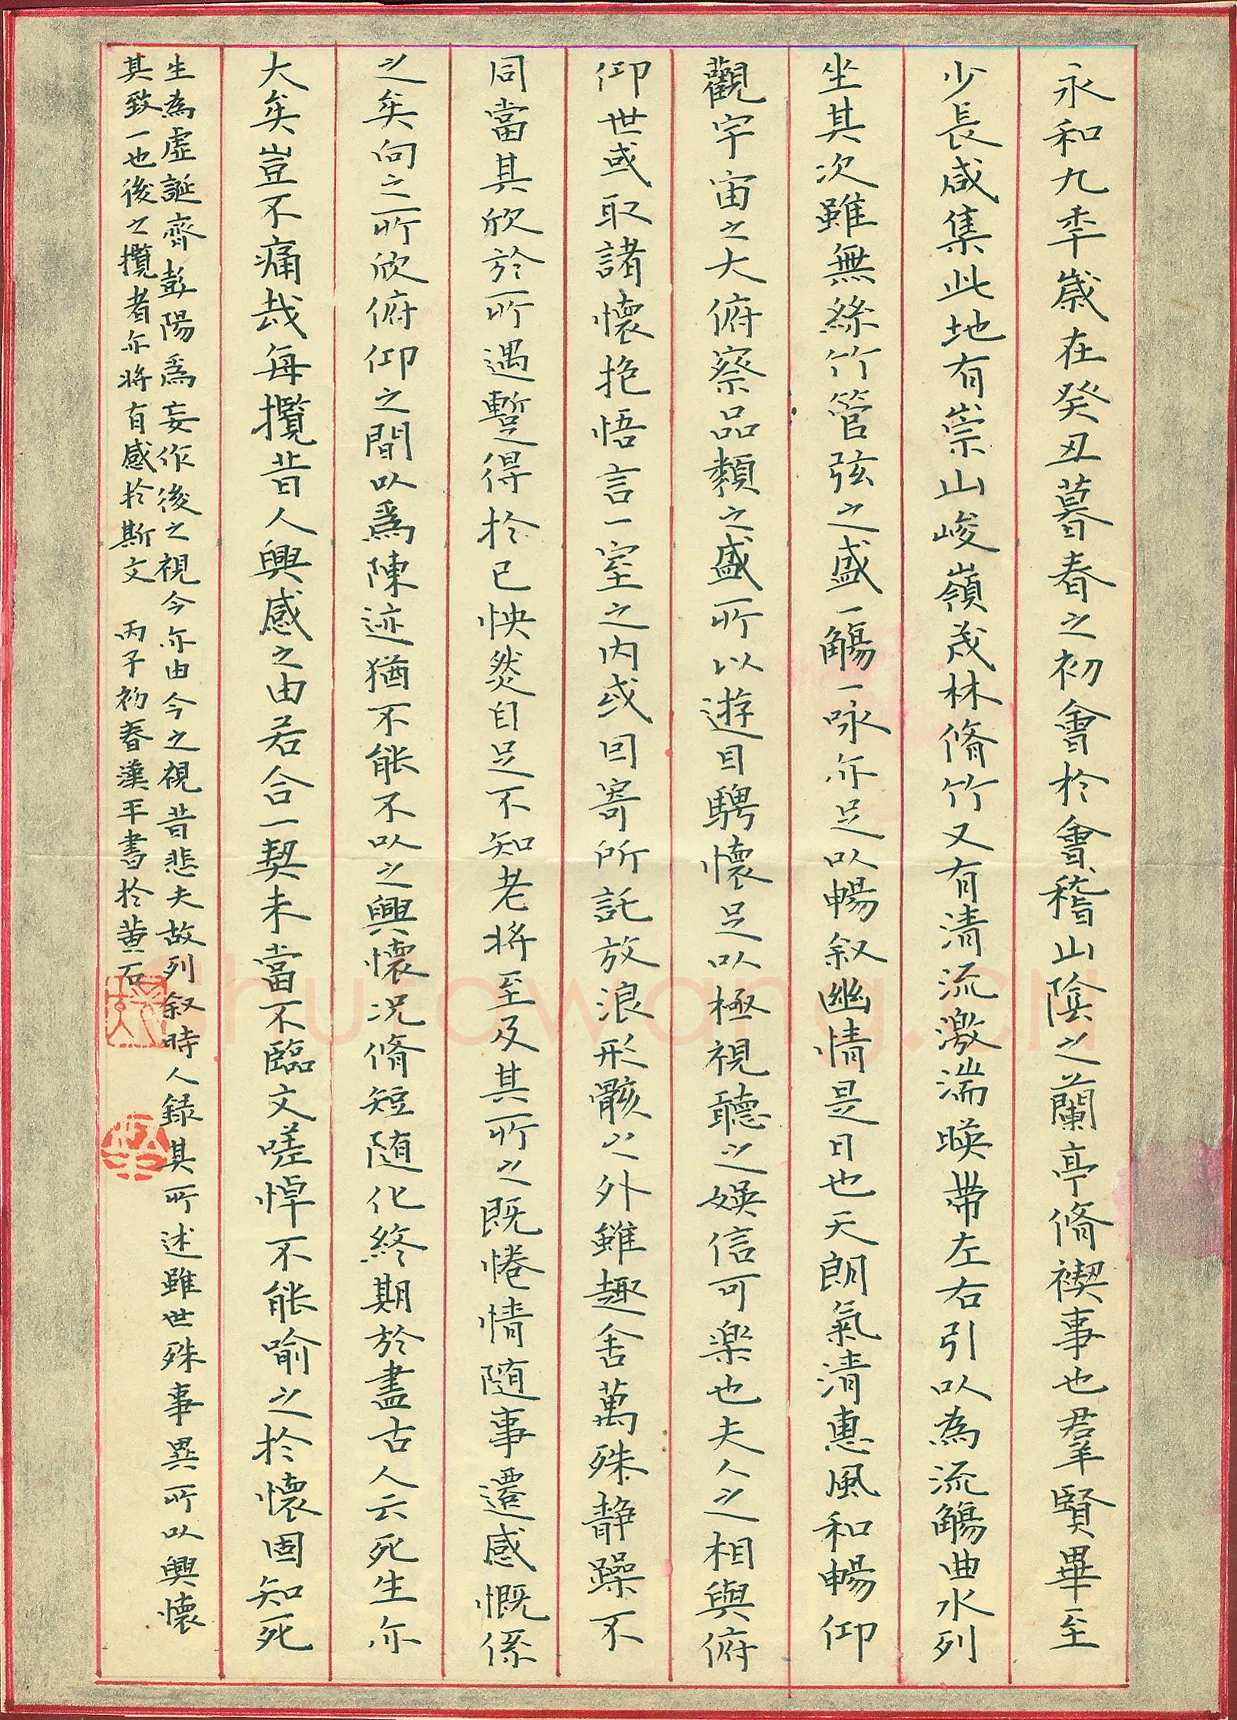 永和九年歲在癸丑暮春之初會於會稽山陰之蘭亭脩禊事也羣賢畢至
少長咸集此地有崇山峻嶺茂林脩竹又有清流激湍暎帶左右引以為流觴曲水列
坐其次雖無絲竹管弦之盛一觴一咏亦足以暢叙幽情是日也天朗氣清惠風和暢仰
觀宇宙之大俯察品類之盛所以遊目騁懷足以極視聽之娛信可樂也夫人之相與俯
仰世或取諸懷抱悟言一室之内或回寄所託放浪形骸之外雖趣舍萬殊静躁不
同當其欣於所遇蹔得於己怏然自足不知老將至及其所之既惓情隨事遷感慨係
之矣向之所欣俯仰之間以爲陳迹猶不能不以之興懷况脩短隨化終期於盡古人云死生亦
大矣豈不痛哉每攬昔人興感之由若合一契未嘗不臨文嗟悼不能喻之於懷固知死
生為虚誕齊彭殤爲妄作後之視今亦由今之視昔悲夫故列叙時人録其所述雖世殊事異所以興懷
其致一也後之攬者亦將有感於斯文 丙子初春漢平書於黄石
Shufawang.CN